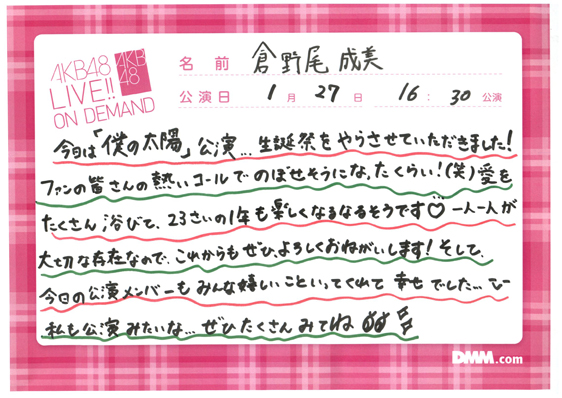 AKB48
LIVE!!
ON DEMAND
AKB
48
名前 倉野尾 成美
公演日 1月 27日 16:30公演
今日は「僕の太陽」公演…生誕祭をやらさせていただきました!
ファンの皆さんの熱いコールでのぼせそうになったくらい!(笑)愛を
たくさん浴びて、23さいの1年も楽しくなるなるそうです♡一人一人が
大切な存在なので、これからもぜひ、よろしくおねがいします!そして、
今日の公演メンバーもみんな嬉しいこといってくれて幸せでした…
私も公演みたいな…ぜひたくさんみてね
DMM.com